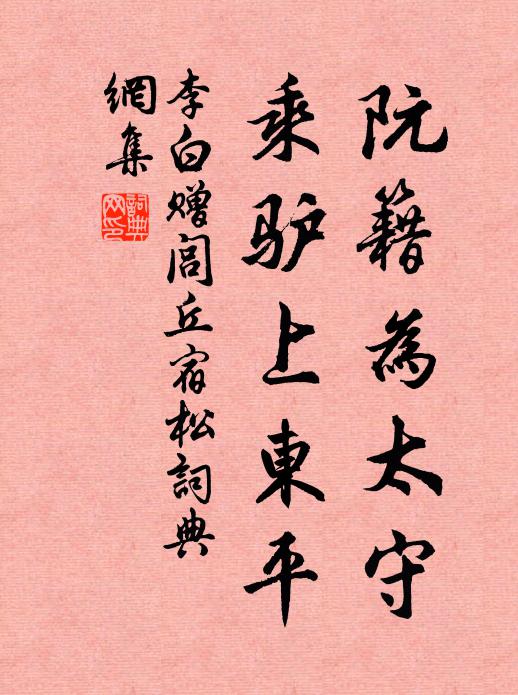 阮籍為太守
乘驴上東平
李白赠閭丘宿松詞典
網集
詞典
网印